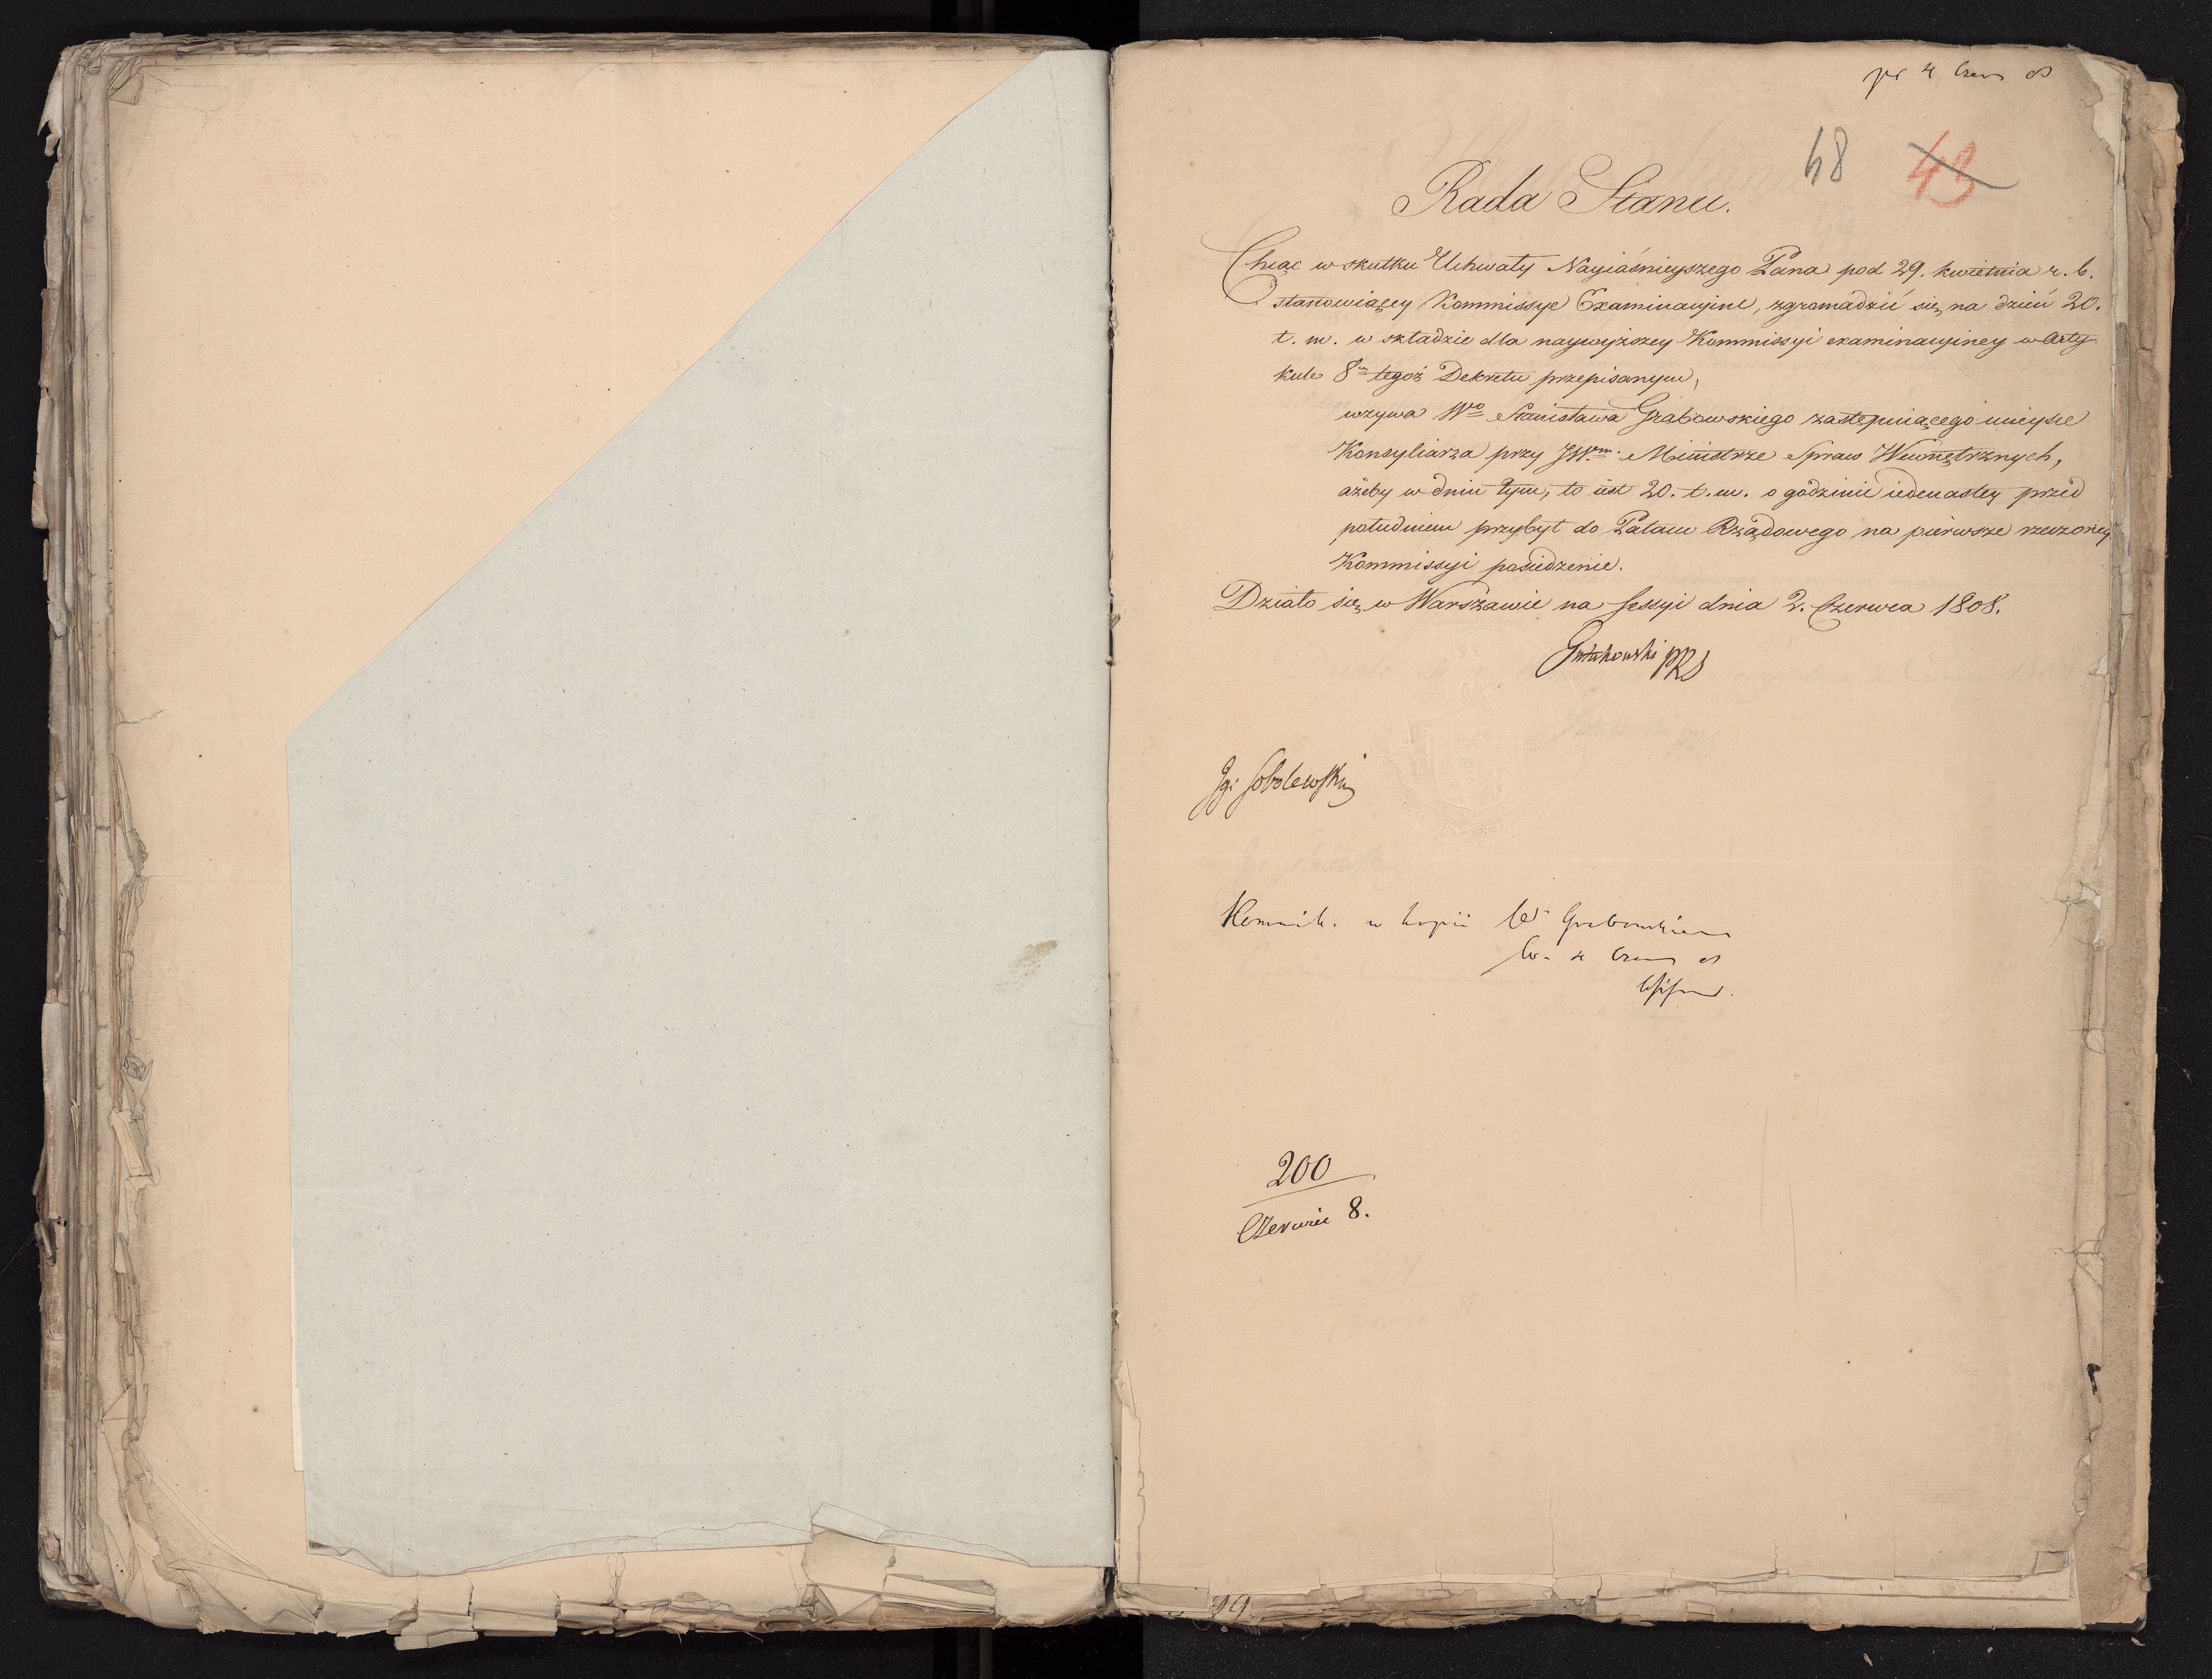 pr 4 Czerw 08
48 43
Rada Stanu.
Chcąc w skutku Uchwały Nayiaśnieyszego Pana pod 29. kwietnia r. b.
stanowiącey Kommissye Examinacyine, zgromadzić się na dzień 20.
t. m. w składzie dla naywyższey Kommissyi examinacyiney w Arty-
kule 8m tegoż Dekretu przepisanym,
wzywa Wo Stanisława Grabowskiego zastępuiącego mieysce
Konsyliarza przy JWm. Ministrze Spraw Wewnętrznych,
ażeby w dniu tym, to iest 20. t. m. o godzinie iedenastey przed
południem przybył do Pałacu Rządowego na pierwsze rzeczoney
Kommissyi posiedzenie.
Działo się w Warszawie na Sessyi dnia 2. Czerwca 1808.
Gutakowski PRS
Ig: Sobolewski
Komunik. w kopii W Grabowskiemu
W. 4 Czerw 08
200
Czerwiec 8.
49